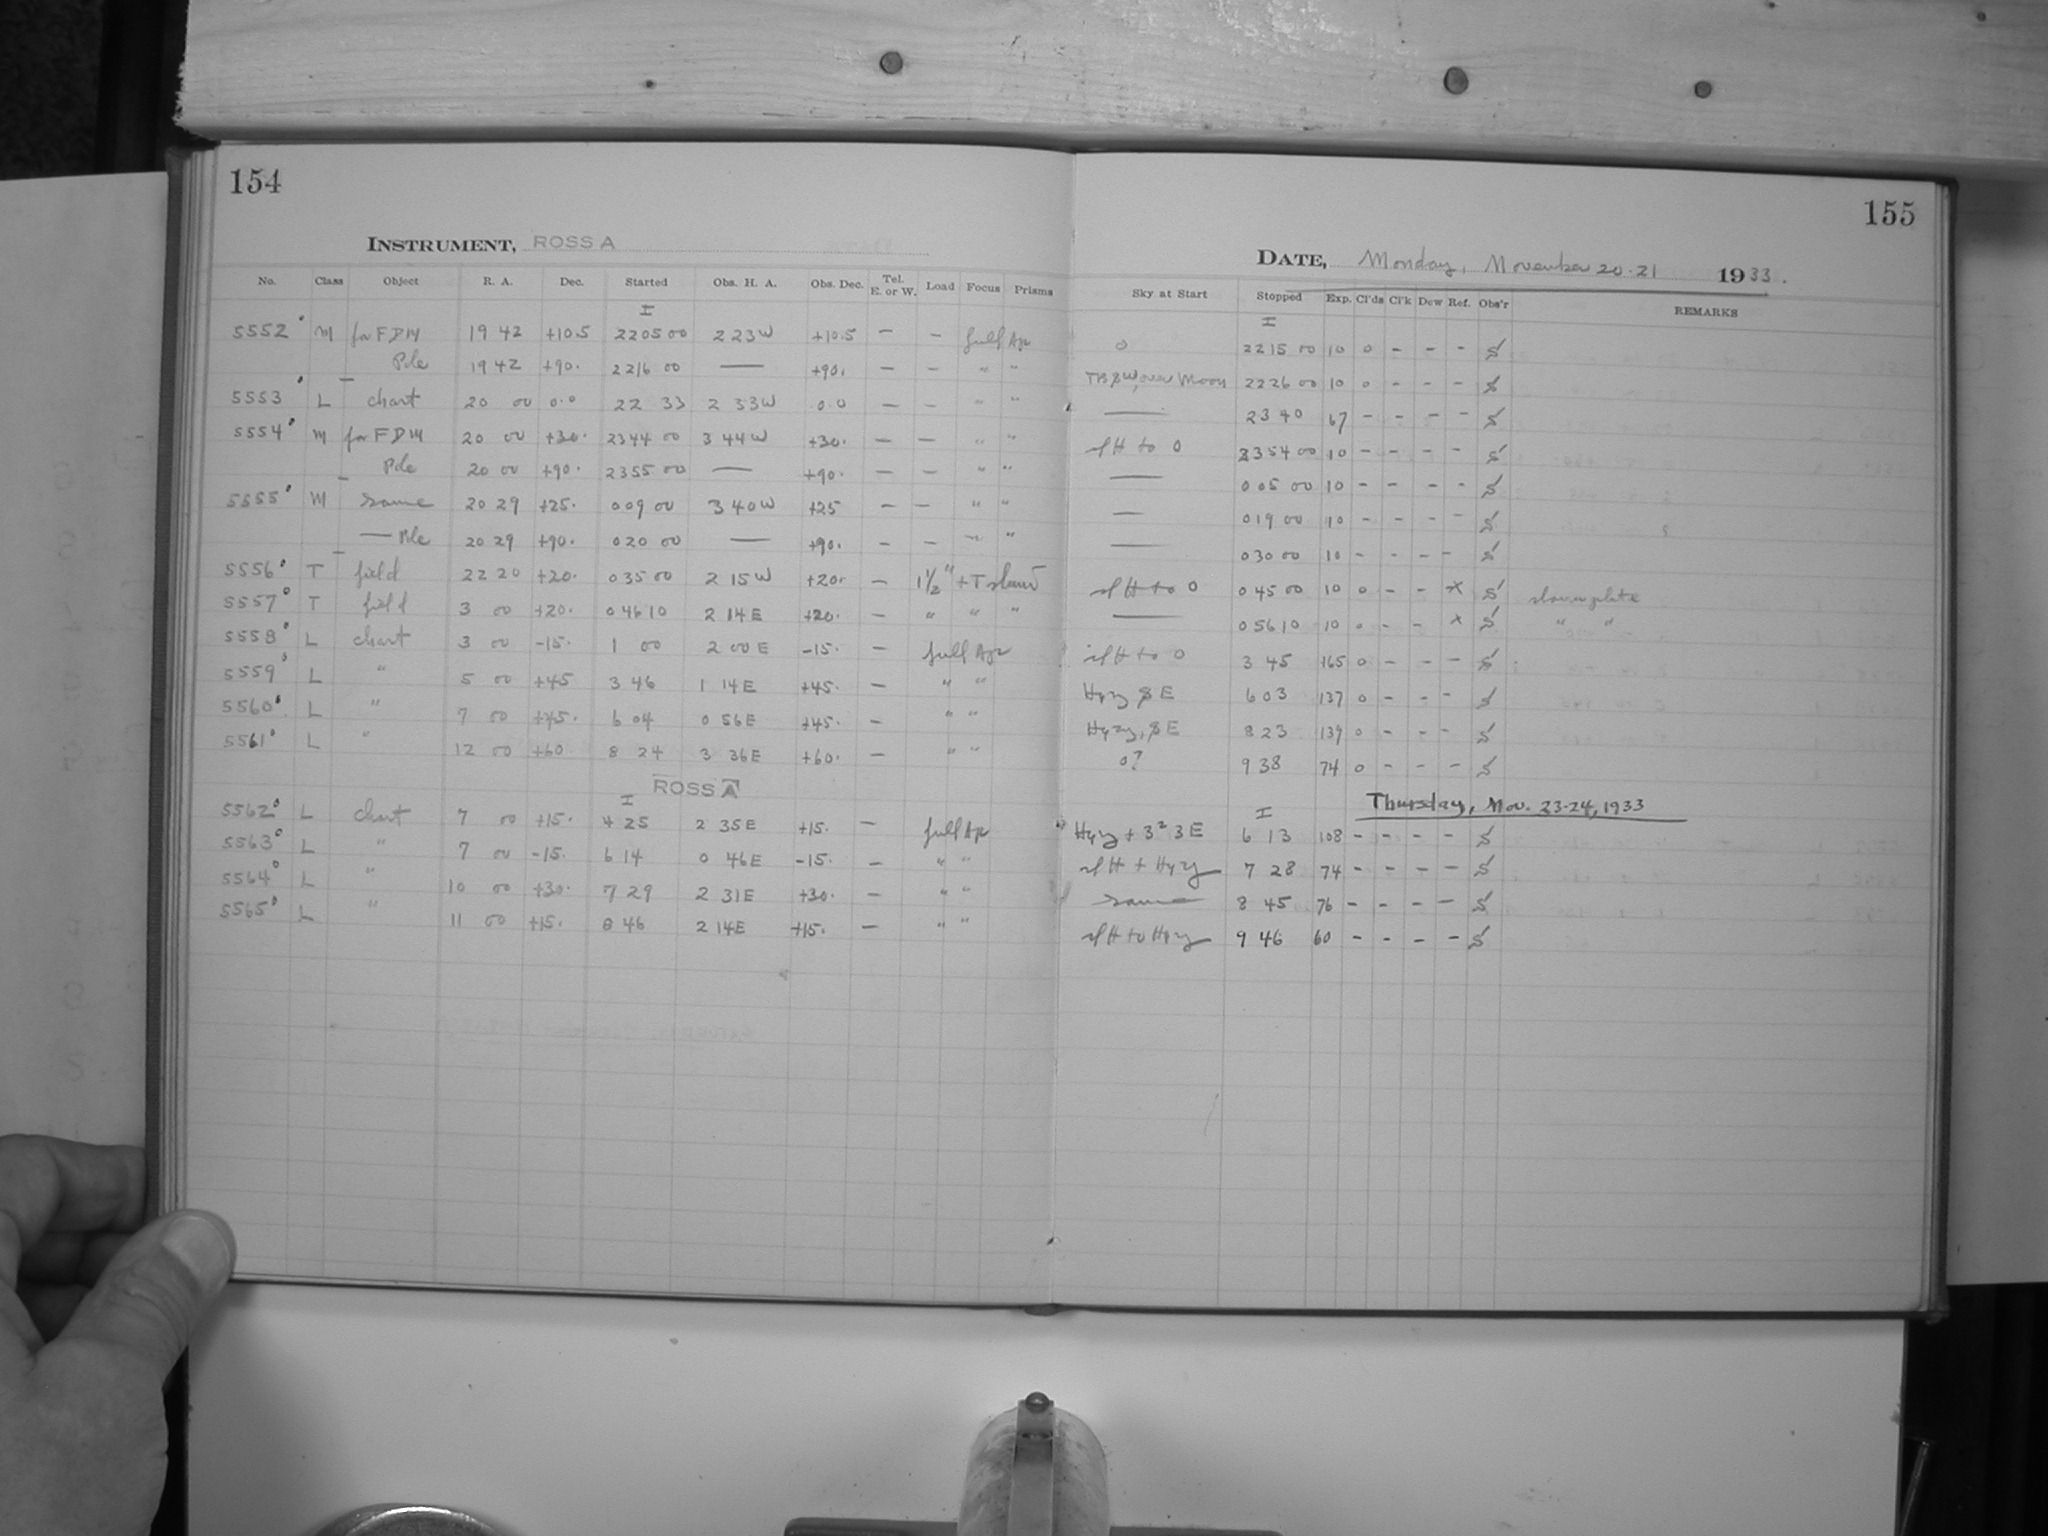 154
INSTRUMENT, ROSS A
No. Class Object R. A. Dec. Started Obs. H. A. Obs. Dec. Tel. E. or W. Load Focus Prisms
I
5552 M for FDM 19 42 +10.5 22 05 00 2 23W +10.5 — — full Apr
Pole 19 42 +90. 22 16 00 — +90. — — " "
5553 L chart 20 00 0.0 22 33 2 33W 0.0 — — " "
5554 M for FDM 20 00 +30. 23 44 00 3 44W +30. — — " "
Pole 20 00 +90. 23 55 00 — +90. — — " "
5555 M same 20 29 +25. 0 09 00 3 40W +25 — — " "
— Pole 20 29 +90. 0 20 00 — +90. — — " "
5556 T field 22 20 +20. 0 35 00 2 15W +20. — 1½" + T
5557 T field 3 00 +20. 0 46 10 2 14E +20. — " " "
5558 L chart 3 00 -15. 1 00 2 00E -15. — full Apr
5559 L " 5 00 +45 3 46 1 14E +45. — " "
5560 L " 7 00 +45. 6 04 0 56E +45. — " "
5561 L " 12 00 +60 8 24 3 36E +60. — " "
ROSS A
I
5562 L chart 7 00 +15. 4 25 2 35E +15. — full Apr
5563 L " 7 00 -15. 6 14 0 46E -15. — " "
5564 L " 10 00 +30. 7 29 2 31E +30. — " "
5565 L " 11 00 +15. 8 46 2 14E +15. — " "
155
DATE, Monday, November 20-21 1933.
Sky at Start Stopped Exp. Cl'ds Cl'k Dew Ref. Obs'r REMARKS
I
0 22 15 00 10 0 - - - S
over Moon 22 26 00 10 0 - - - S
— 23 40 67 - - - - S
slH to 0 23 54 00 10 - - - - S
— 0 05 00 10 - - - - S
— 0 19 00 10 - - - - S
— 0 30 00 10 - - - - S
slH to 0 0 45 00 10 0 - - x S plate
— 0 56 10 10 0 - - x S " "
slH to 0 3 45 165 0 - - - S
Hazy E 6 03 137 0 - - - S
Hazy, E 8 23 139 0 - - - S
0? 9 38 74 0 - - - S
I Thursday, Nov. 23-24, 1933
Hazy + 3² 3E 6 13 108 - - - - S
slH + Hazy 7 28 74 - - - - S
same 8 45 76 - - - - S
slH to Hazy 9 46 60 - - - - S